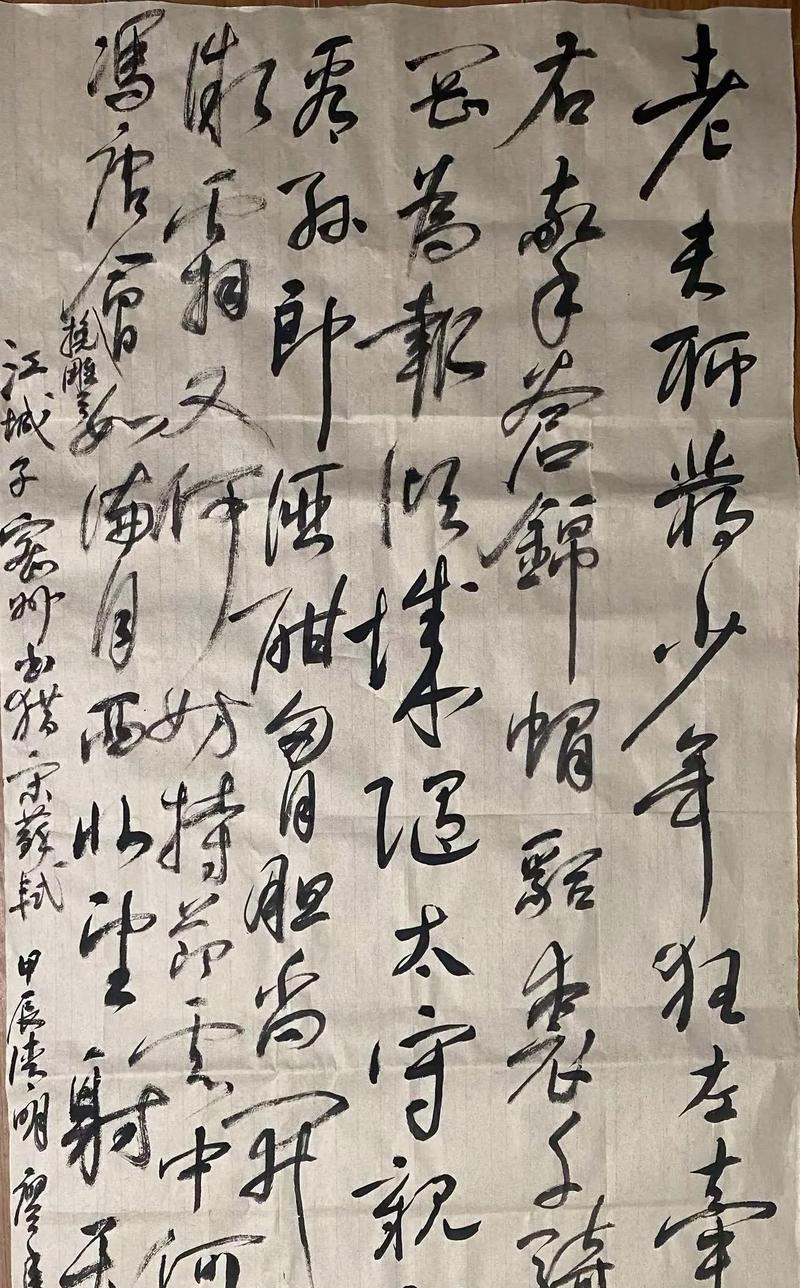 老夫聊發少年狂左牽
右擎蒼錦帽貂裘千騎
岡為報傾城隨太守親
看孫郎酒酣胷胆尚開
微霜又何妨持節雲中何
馮唐會挽雕弓如滿月西北望射天
江城子密州出獵宋蘇軾 甲辰清明 廖